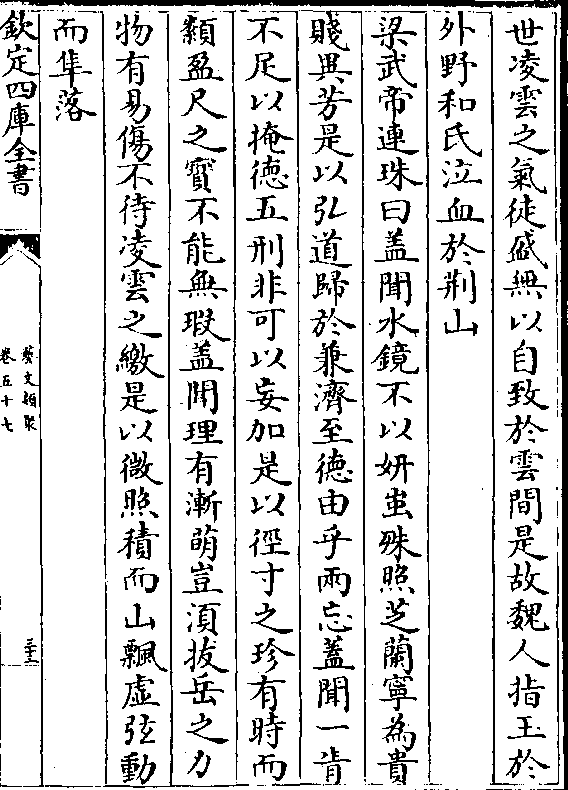 世凌雲之氣徒盛無以自致於雲間是故魏人指玉於
外野和氏泣血於荆山
梁武帝連珠曰盖聞水鏡不以妍蚩殊照芝蘭寧為貴
賤異芳是以弘道歸於兼濟至德由乎兩忘盖聞一眚
不足以掩德五刑非可以妄加是以徑寸之珍有時而
纇盈尺之寳不能無瑕盖聞理有漸萌豈湏拔岳之力
物有易傷不待凌雲之繳是以微照積而山飄虛弦動
而隼落
欽定四庫全書
藝文類聚
卷五十七
三十二